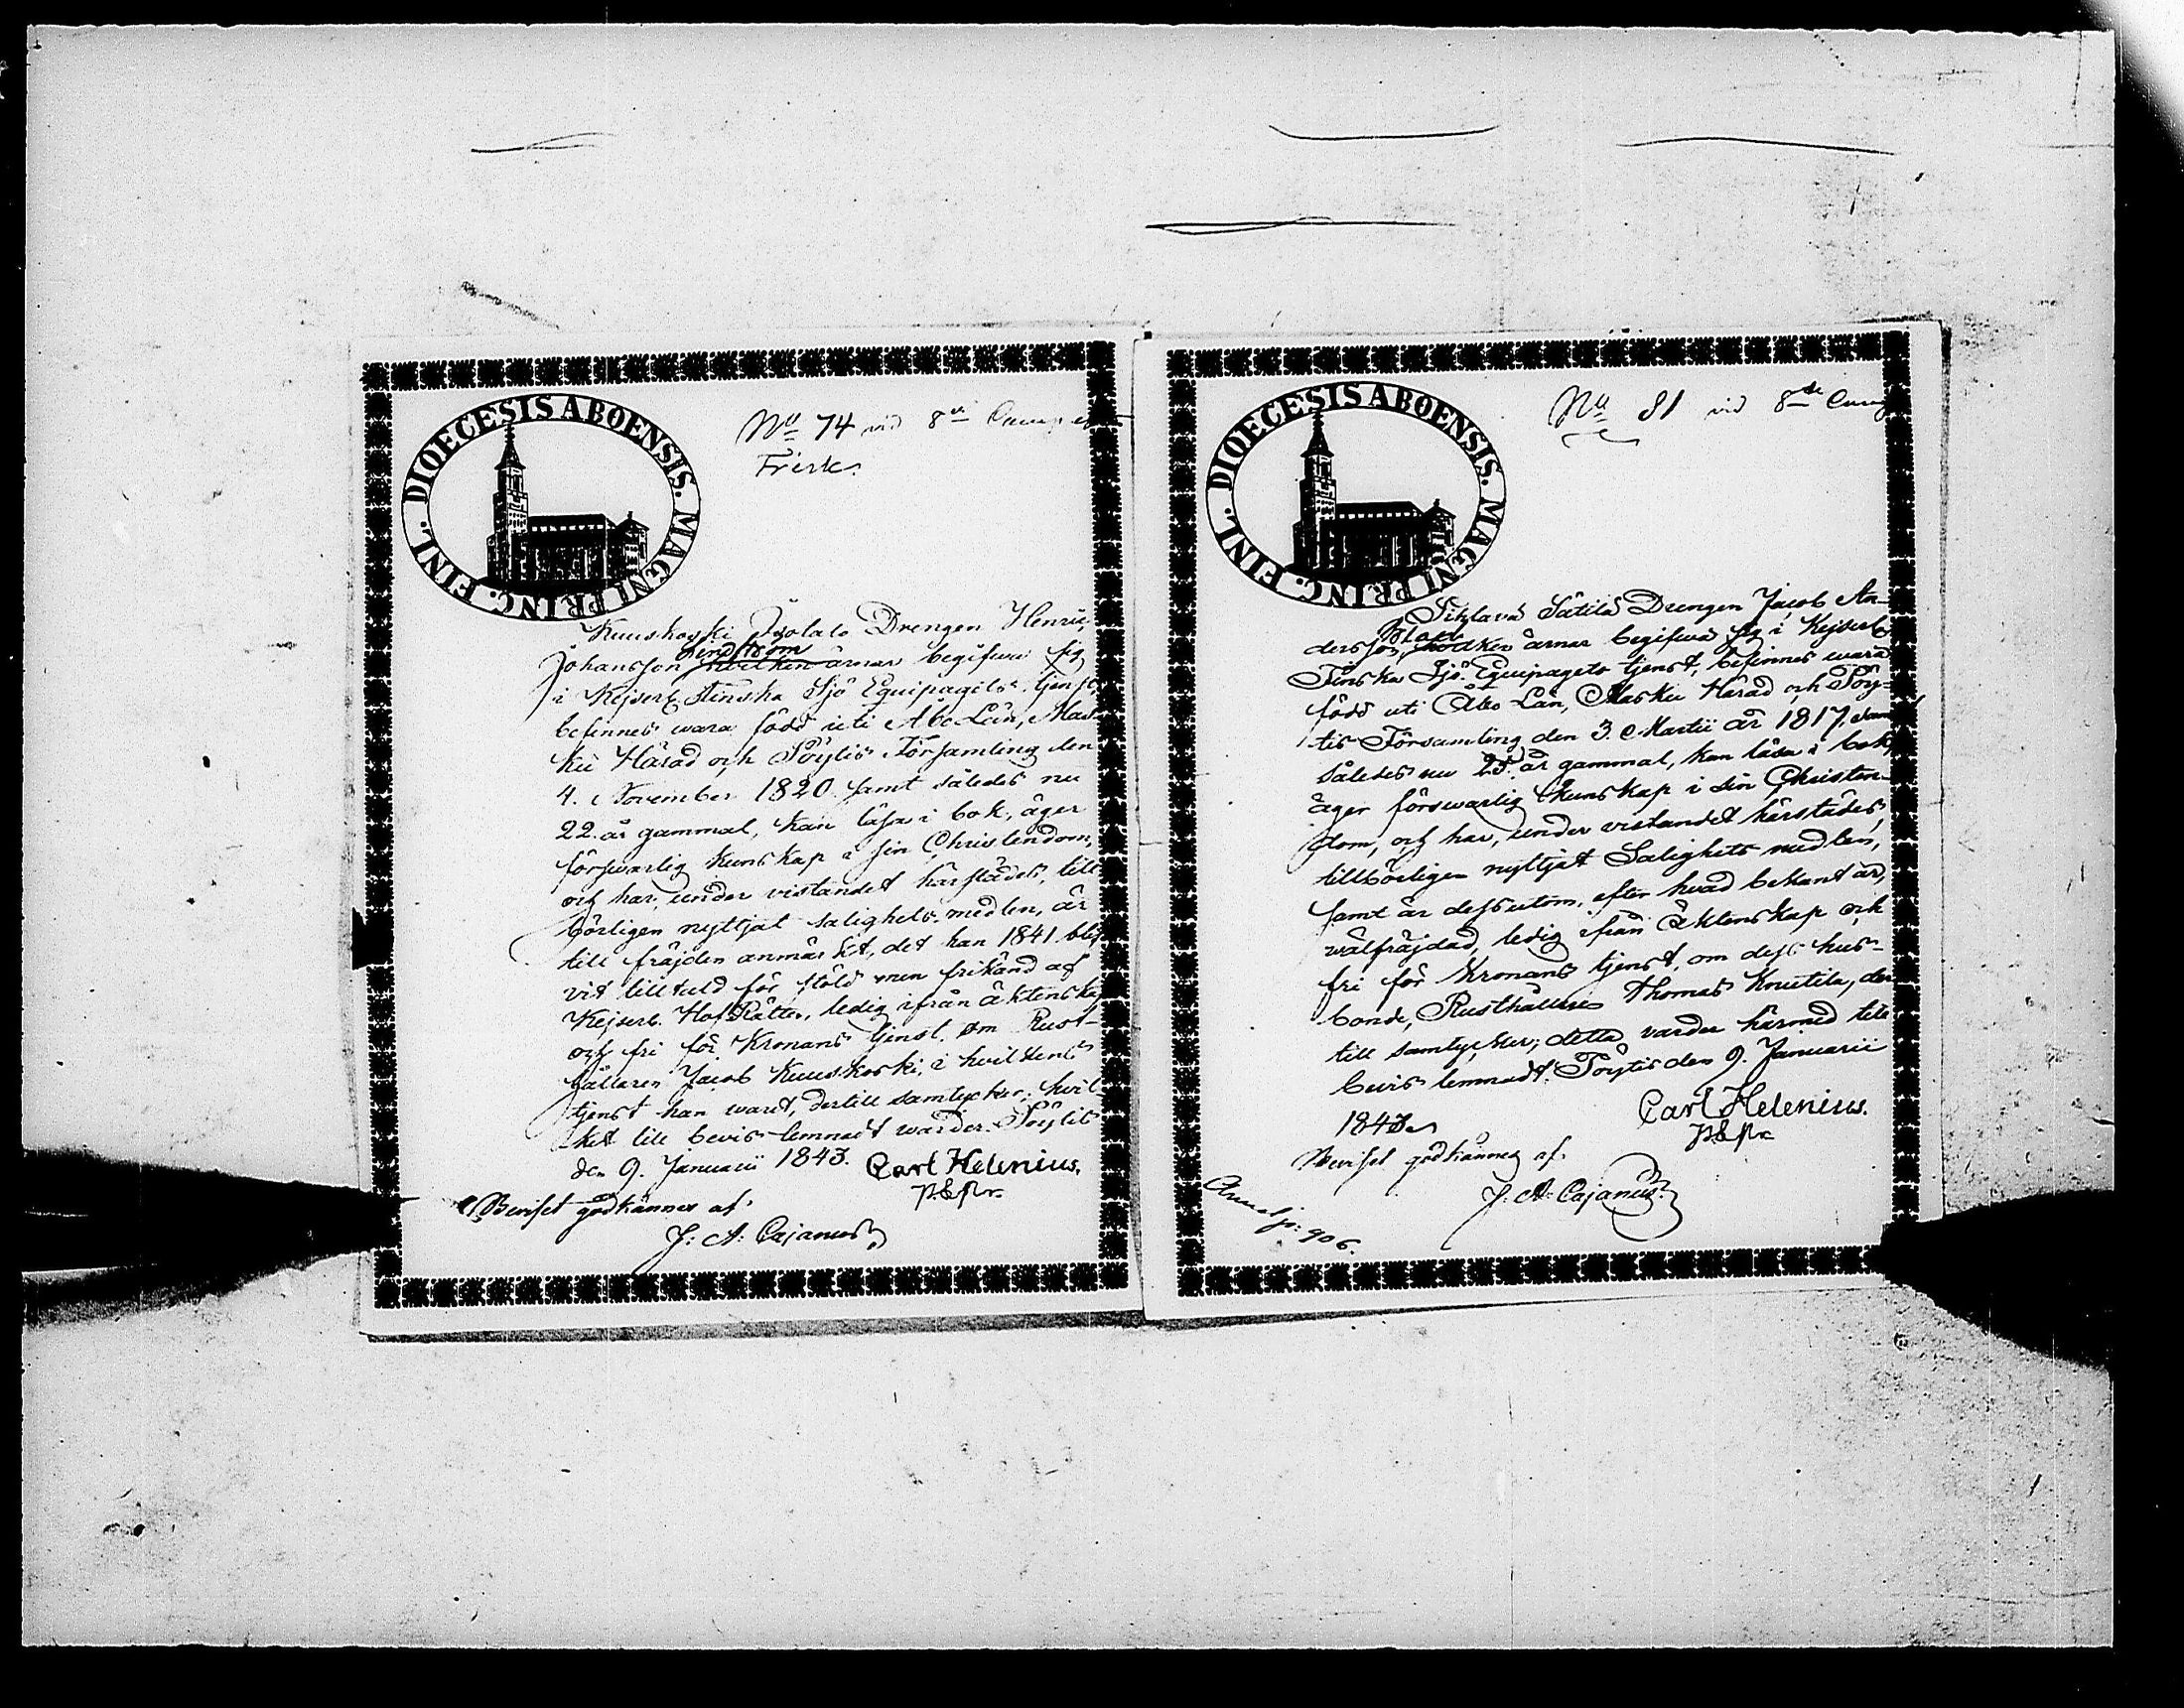 DIOECESIS ABOENSIS. MAGNI PRINC. FINL.
No 74 vid 8de Comp
Frisk.
Kuuskoski Isotalo Drengen Henric
Lindstrom
Johansson hvilken ärnar begifwa sig
i Kejserl. Finska Sjö Equipagets tjenst,
befinnes wara född uti Åbo Län, Mas-
ku Härad och Pöytis Församling den
4. November 1820 samt således nu
22. år gammal, kan läsa i bok, äger
förswarlig kunskap i sin Christendom,
och har, under vistandet härstädes, till
börligen nyttjat salighets-medlen, är
till fräjden anmärkt, det han 1841 blif-
vit tilltald för stöld men frikänd af
Kejserl. HofRätten, ledig ifrån äktenskap
och fri för Kronans tjenst, om Rust-
hållaren Jacob Kuuskoski, i hvilkens
tjenst han warit, dertill samtycker; hvil-
ket till bevis lemnadt warder. Pöytis
den 9. Januarii 1843. Carl Helenius.
Beviset godkännes af
J. A. Cajanus
DIOECESIS ABOENSIS. MAGNI PRINC. FINL.
No 81 vid 8de Comp
Sätila Drengen Jacob An-
dersson hvilken ärnar begifwa sig i Kejserl.
Finska Sjö-Equipagets tjenst, befinnes wara
född uti Åbo Län, Masku Härad och Pöy-
tis Församling den 3. Martii år 1817, samt
således nu 25. år gammal, kan läsa i bok,
äger förswarlig kunskap i sin Christen-
dom, och har, under vistandet härstädes,
tillbörligen nyttjat Salighets medlen,
samt är dessutom, efter hvad bekant är,
wälfräjdad, ledig ifrån Äktenskap och
fri för Kronans tjenst, om dess hus-
bonde, Rusthållaren Thomas Knuutila, der
till samtycker; detta varder härmed till
bevis lemnadt. Pöytis den 9. Januarii
1843.
Carl Helenius.
Beviset godkännes af
J. A. Cajanus
906.